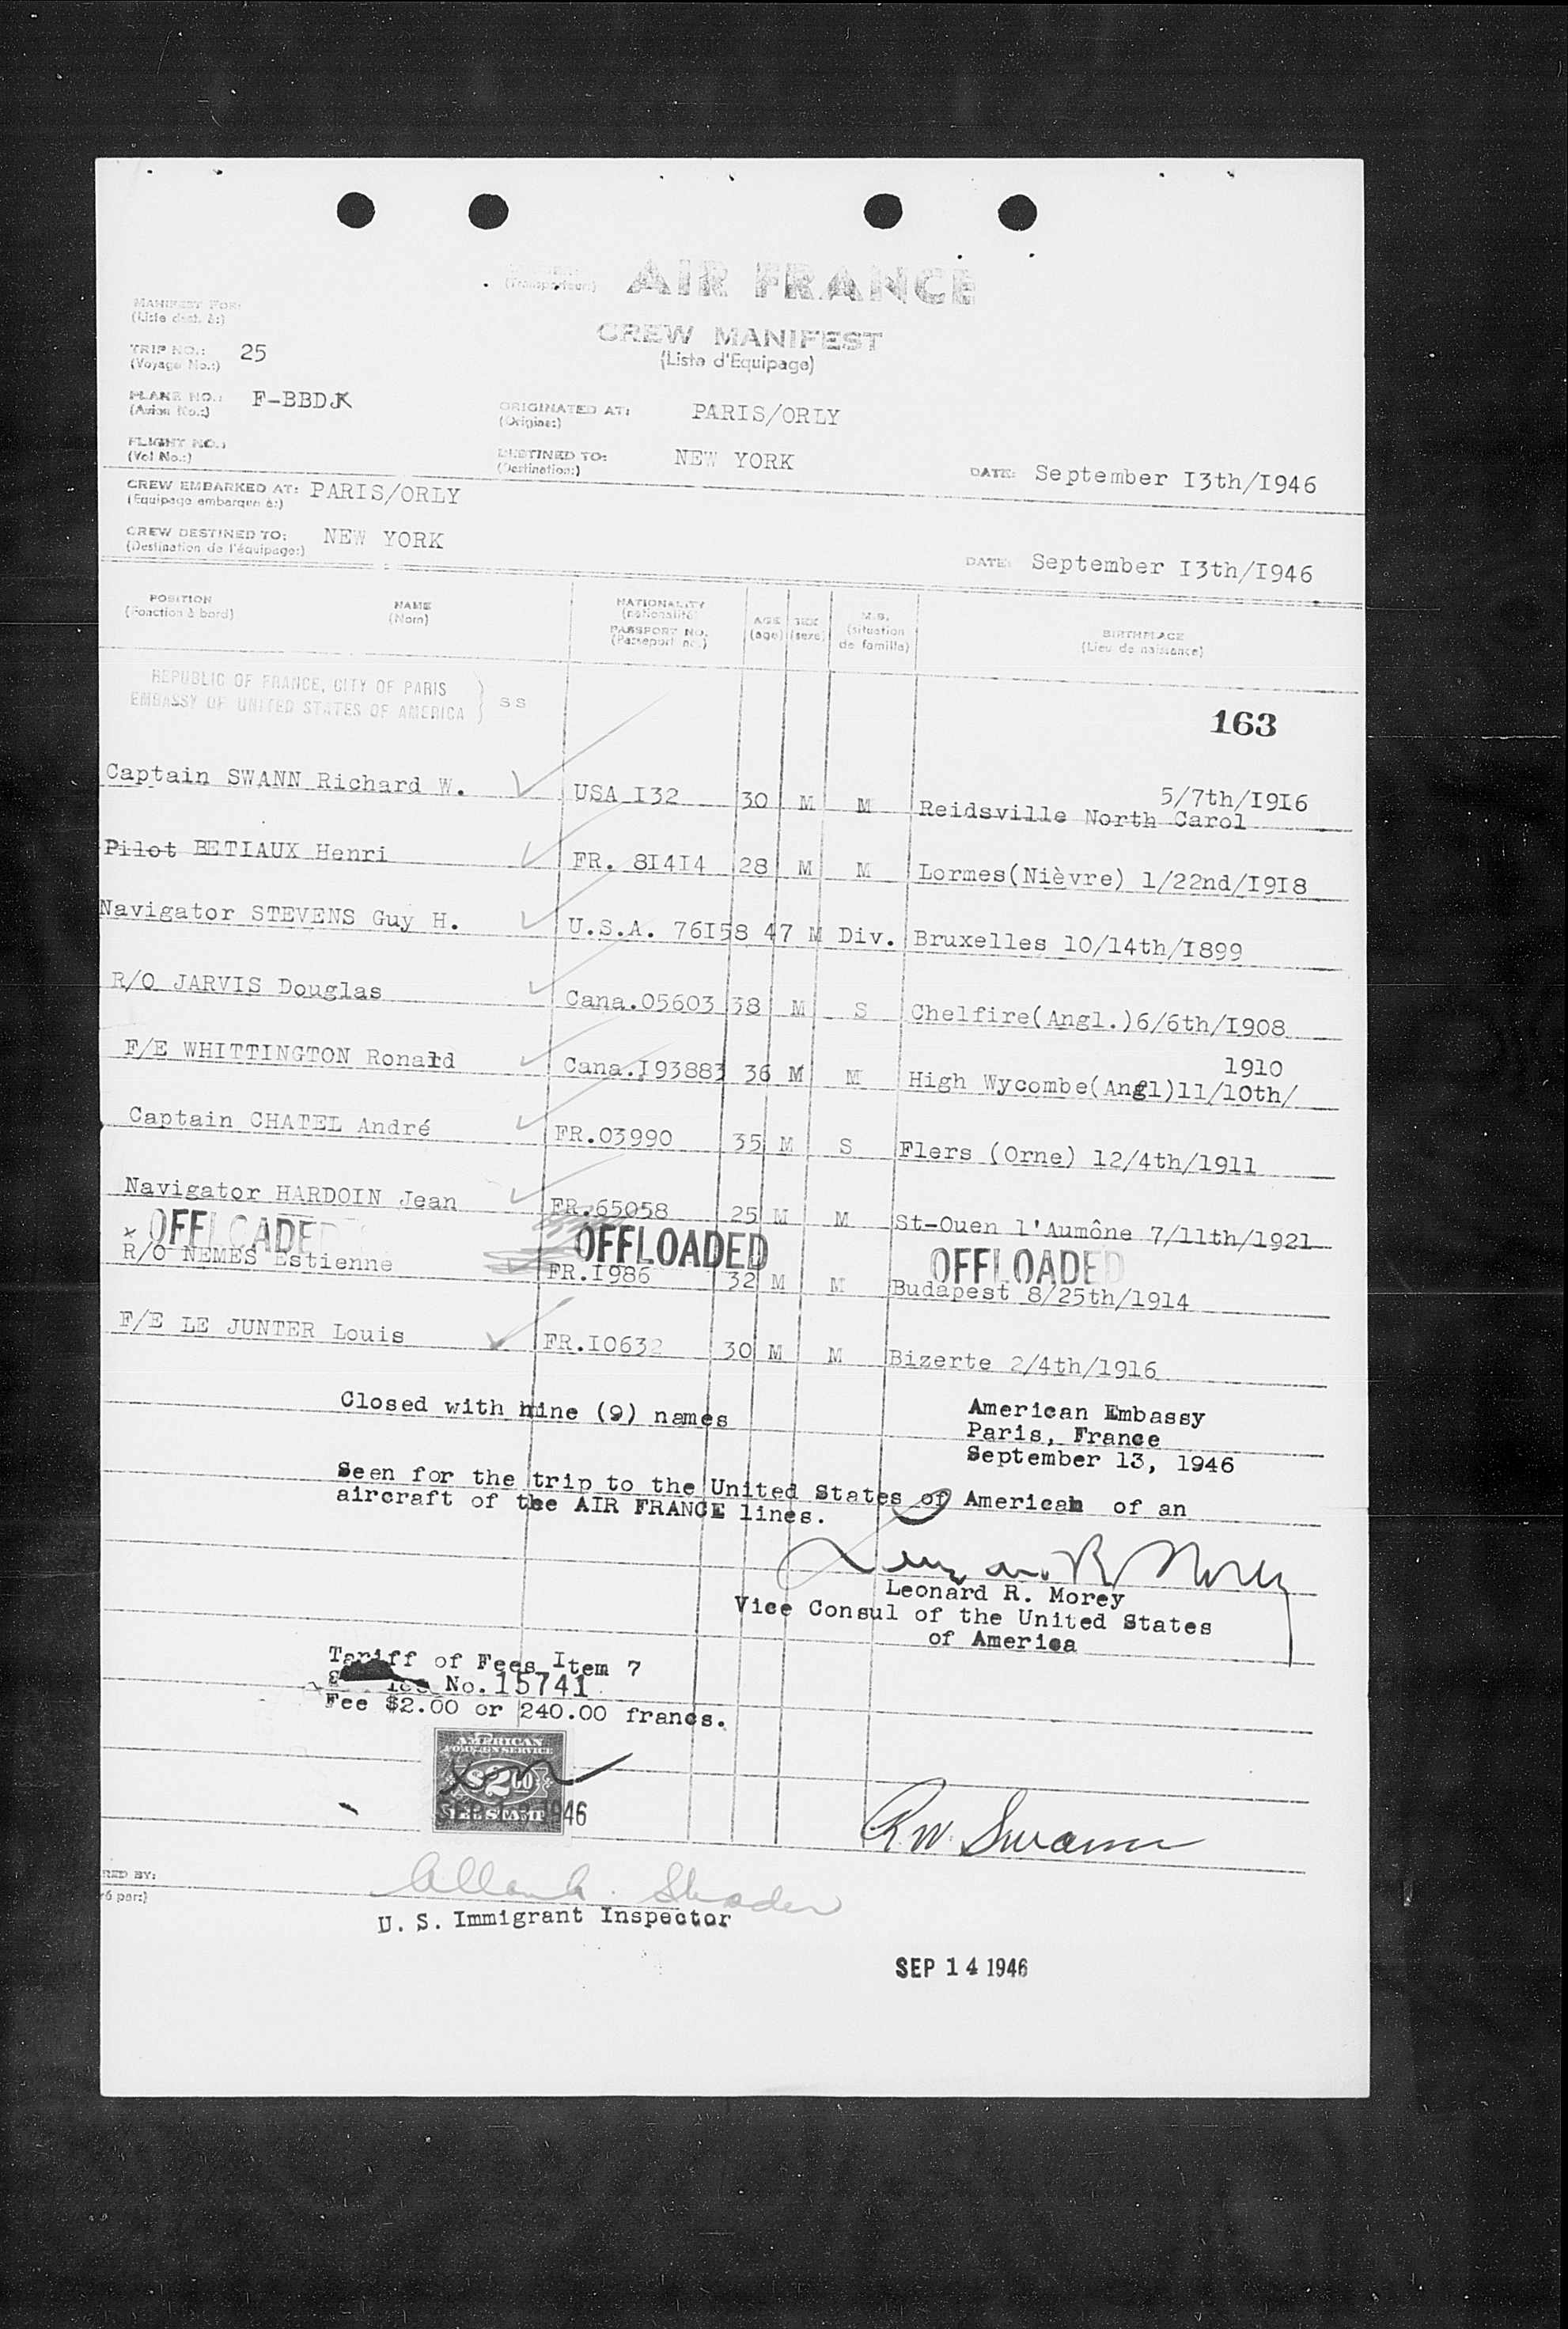 (Transporteur) AIR FRANCE
MANIFEST FOR:
(Liste dest. à:)
CREW MANIFEST
(Liste d'Equipage)
TRIP NO.: 25
(Voyage No.:)
PLANE NO.: F-BBDK
(Avion No.:)
ORIGINATED AT: PARIS/ORLY
(Origine:)
FLIGHT NO.:
(Vol No.:)
DESTINED TO: NEW YORK
(Destination:)
DATE: September I3th/I946
CREW EMBARKED AT: PARIS/ORLY
(Equipage embarqué à:)
CREW DESTINED TO: NEW YORK
(Destination de l'équipage:)
DATE: September I3th/I946
POSITION NAME NATIONALITY AGE SEX M.S. BIRTHPLACE
(Fonction à bord) (Nom) (nationalité) (age) (sexe) (situation de famille) (Lieu de naissance)
PASSPORT NO.
(Passeport no.)
REPUBLIC OF FRANCE, CITY OF PARIS
EMBASSY OF UNITED STATES OF AMERICA } SS
163
Captain SWANN Richard W. USA I32 30 M M Reidsville North Carol 5/7th/I9I6
Pilot BETIAUX Henri FR. 8I4I4 28 M M Lormes(Nièvre) 1/22nd/I9I8
Navigator STEVENS Guy H. U.S.A. 76I58 47 M Div. Bruxelles 10/14th/I899
R/O JARVIS Douglas Cana.05603 38 M S Chelfire(Angl.)6/6th/I908
F/E WHITTINGTON Ronald Cana.I93883 36 M M High Wycombe(Angl)11/10th/ 1910
Captain CHATEL André FR.03990 35 M S Flers (Orne) 12/4th/1911
Navigator HARDOIN Jean FR.65058 25 M M St-Ouen l'Aumône 7/11th/1921
x OFFLOADED OFFLOADED OFFLOADED
R/O NEMES Estienne FR.I986 32 M M Budapest 8/25th/1914
F/E LE JUNTER Louis FR.I0632 30 M M Bizerte 2/4th/1916
Closed with nine (9) names
American Embassy
Paris, France
September 13, 1946
Seen for the trip to the United States of American of an
aircraft of the AIR FRANCE lines.
Leonard R. Morey
Vice Consul of the United States
of America
Tariff of Fees Item 7
No. 15741
Fee $2.00 or 240.00 francs.
AMERICAN
FOREIGN SERVICE
$2.00
FEE STAMP
SEP 1946
R.W. Swann
U. S. Immigrant Inspector
SEP 14 1946